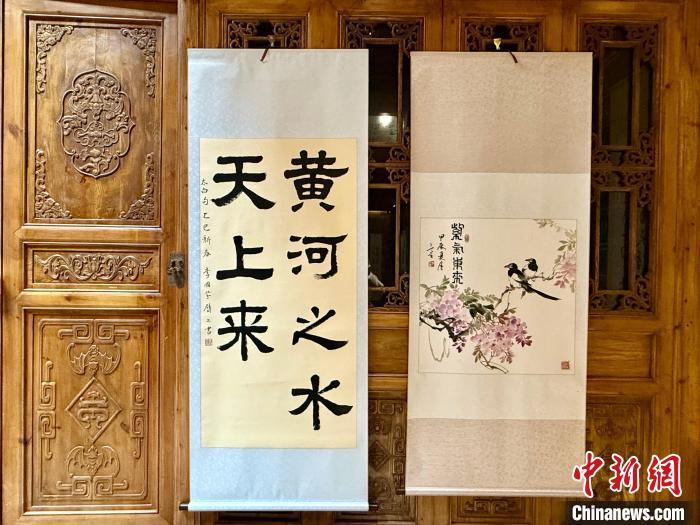 黄河之水
天上来
太白句 乙巳新春
紫氣東來
甲辰
中新網
Chinanews.com